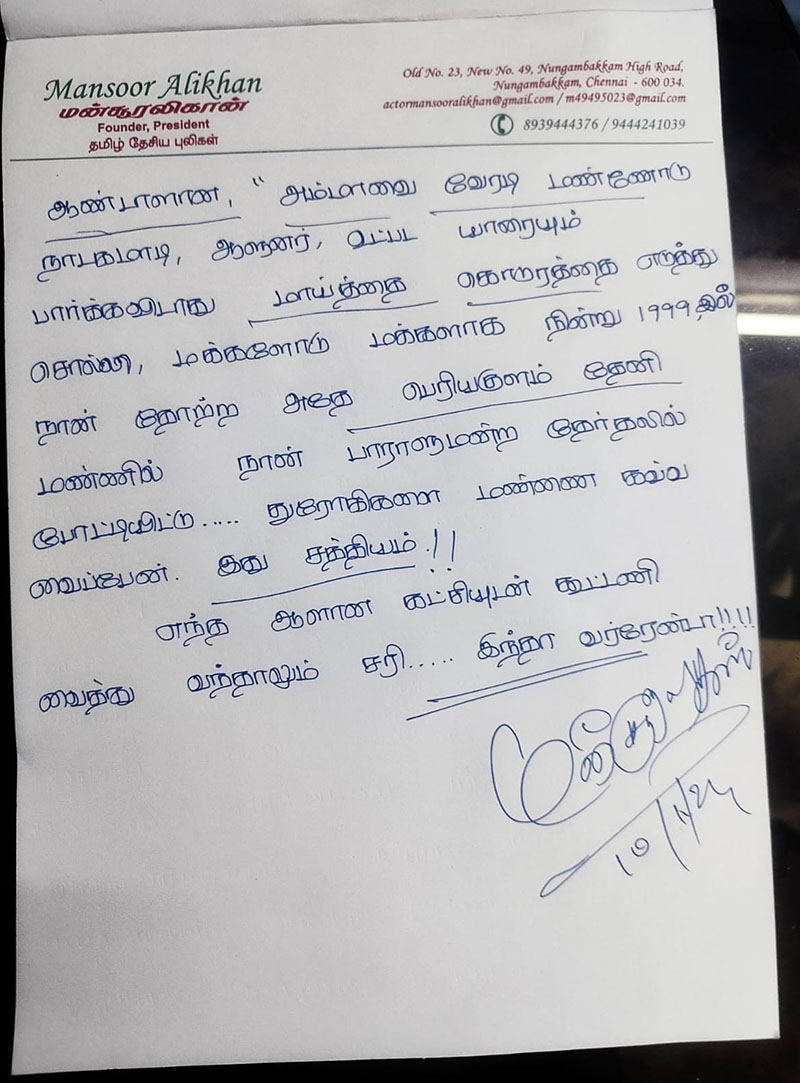 Mansoor Alikhan
மன்சூரலிகான்
Founder, President
தமிழ் தேசிய புலிகள்
Old No. 23, New No. 49, Nungambakkam High Road,
Nungambakkam, Chennai - 600 034.
actormansooralikhan@gmail.com / m49495023@gmail.com
8939444376 / 9444241039
ஆண்டாளான, " அம்மாவை வேரடி மண்ணோடு
நாடகமாடி, ஆளுனர், உட்பட யாரையும்
பார்க்கவிடாது மாய்த்தை கொடூரத்தை எடுத்து
சொல்லி, மக்களோடு மக்களாக நின்று 1999 இல்
நான் தோற்ற அதே பெரியகுளம் தேனி
மண்ணில் நான் பாராளுமன்ற தேர்தலில்
போட்டியிட்டு..... துரோகிகளை மண்ணை கவ்வ
வைப்பேன். இது சத்தியம்.!!
எந்த ஆளான கட்சியுடன் கூட்டணி
வைத்து வந்தாலும் சரி..... இந்தா வர்ரேண்டா!!!!
10/1/24